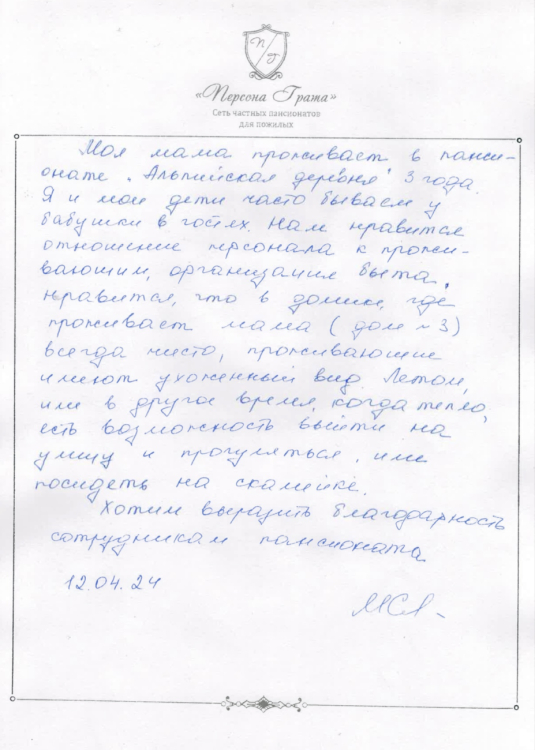 П
Г
«Персона Грата»
Сеть частных пансионатов
для пожилых
Моя мама проживает в панси-
онате „Альпийская деревня" 3 года.
Я и мои дети часто бываем у
бабушки в гостях. Нам нравится
отношение персонала к прожи-
вающим, организация быта,
нравится, что в домике, где
проживает мама (дом № 3)
всегда чисто, проживающие
имеют ухоженный вид. Летом,
или в другое время, когда тепло,
есть возможность выйти на
улицу и прогуляться, или
посидеть на скамейке.
Хотим выразить благодарность
сотрудникам пансионата
12.04.24